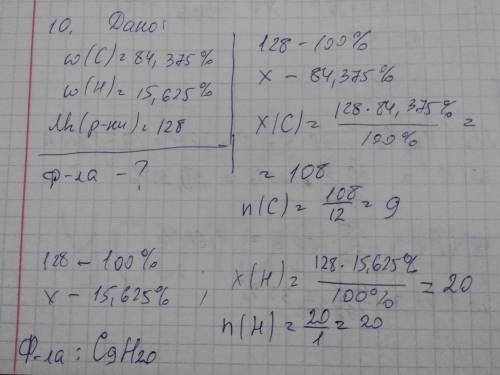 10. Дано:
w(C) = 84,375%
w(H) = 15,625%
Mr(р-ни) = 128
ф-ла - ?
128 - 100%
x - 84,375%
x(C) = 128 · 84,375% / 100% =
= 108
n(C) = 108/12 = 9
128 - 100%
x - 15,625% ;
x(H) = 128 · 15,625% / 100% = 20
n(H) = 20/1 = 20
Ф-ла : C9H20